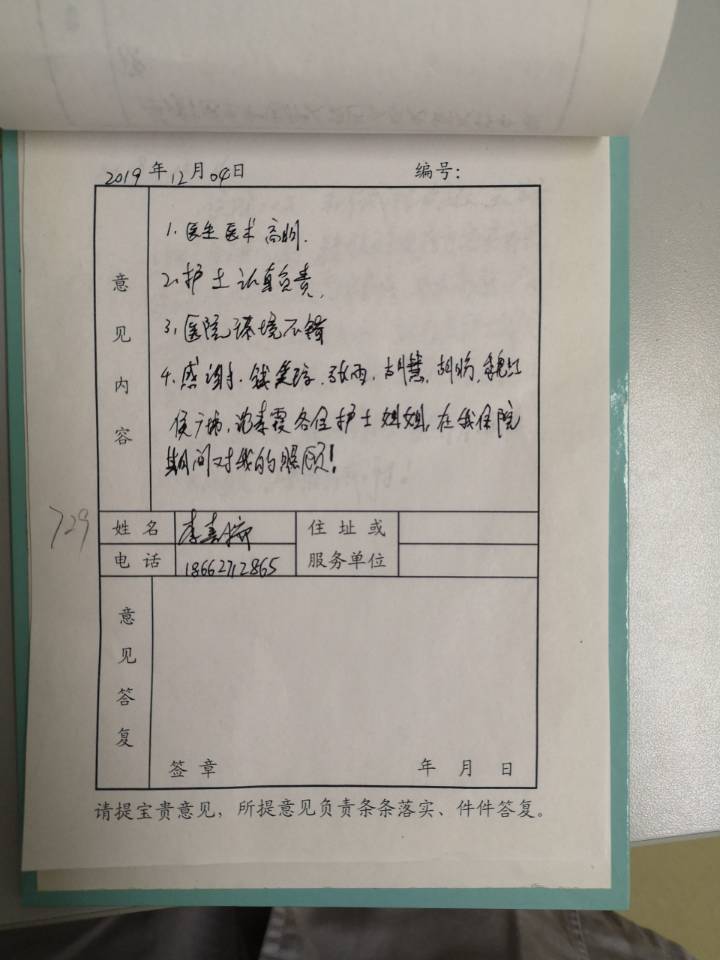 2019年12月04日 编号:
意见内容
1. 医生医术高明.
2. 护士认真负责.
3. 医院环境不错
4. 感谢. 张雨. 胡慧. 胡
各位护士姐姐, 在我住院
期间对我的照顾!
729
姓名 李 住址或
电话 18662712865 服务单位
意见答复
签章 年 月 日
请提宝贵意见，所提意见负责条条落实、件件答复。